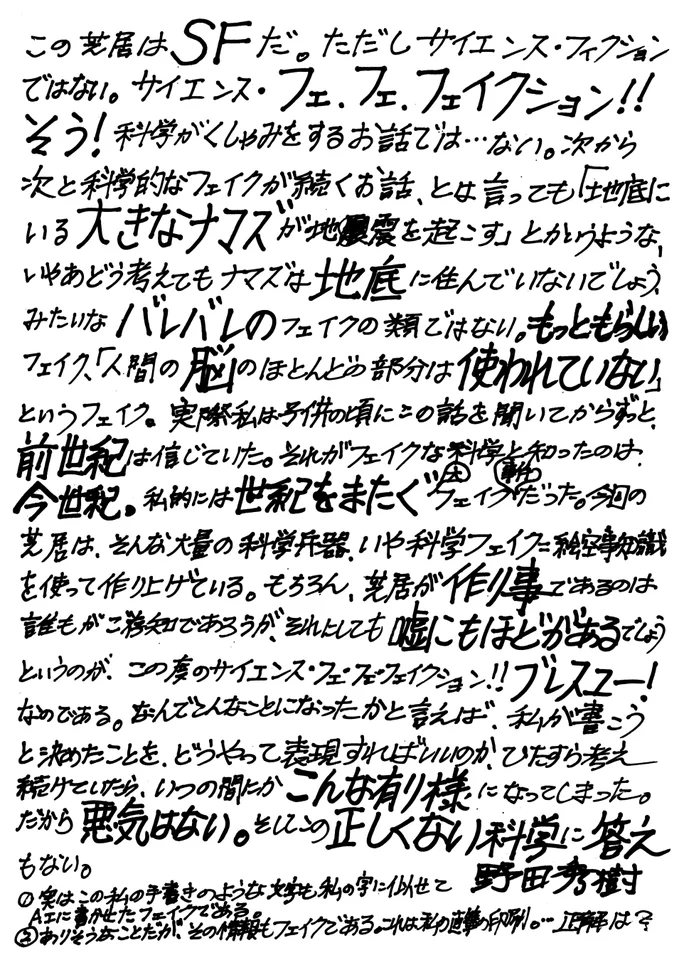 この芝居はSFだ。ただしサイエンス・フィクション
ではない。サイエンス・フェ、フェ、フェイクション!!
そう!科学がくしゃみをするお話では…ない。次から
次と科学的なフェイクが続くお話、とは言っても「地底に
いる大きなナマズが地震を起こす」とかいうような、
いやあどう考えてもナマズは地底に住んでいないでしょう、
みたいなバレバレのフェイクの類ではない。もっともらしい
フェイク、「人間の脳のほとんどの部分は使われていない」
というフェイク。実際私は子供の頃にこの話を聞いてからずっと、
前世紀は信じていた。それがフェイクな科学と知ったのは、
今世紀。私的には世紀をまたぐ大フェイク事件だった。今回の
芝居は、そんな大量の科学兵器、いや科学フェイク=絵空事知識
を使って作り上げている。もちろん、芝居が作り事であるのは
誰もがご存知であろうが、それにしても嘘にもほどがあるでしょう
というのが、この度のサイエンス・フェ・フェ・フェイクション!!ブレスユー!
なのである。なんでこんなことになったかと言えば、私が書こう
と決めたことを、どうやって表現すればいいのか、ひたすら考え
続けていたら、いつの間にかこんな有り様になってしまった。
だから悪気はない。そしてこの正しくない科学に答え
もない。
野田秀樹
①実はこの私の手書きのような文字も、私の字に似せて
AIに書かせたフェイクである。
②ありそうなことだが、その情報もフェイクである。これは私の直筆の印刷。…正解は?